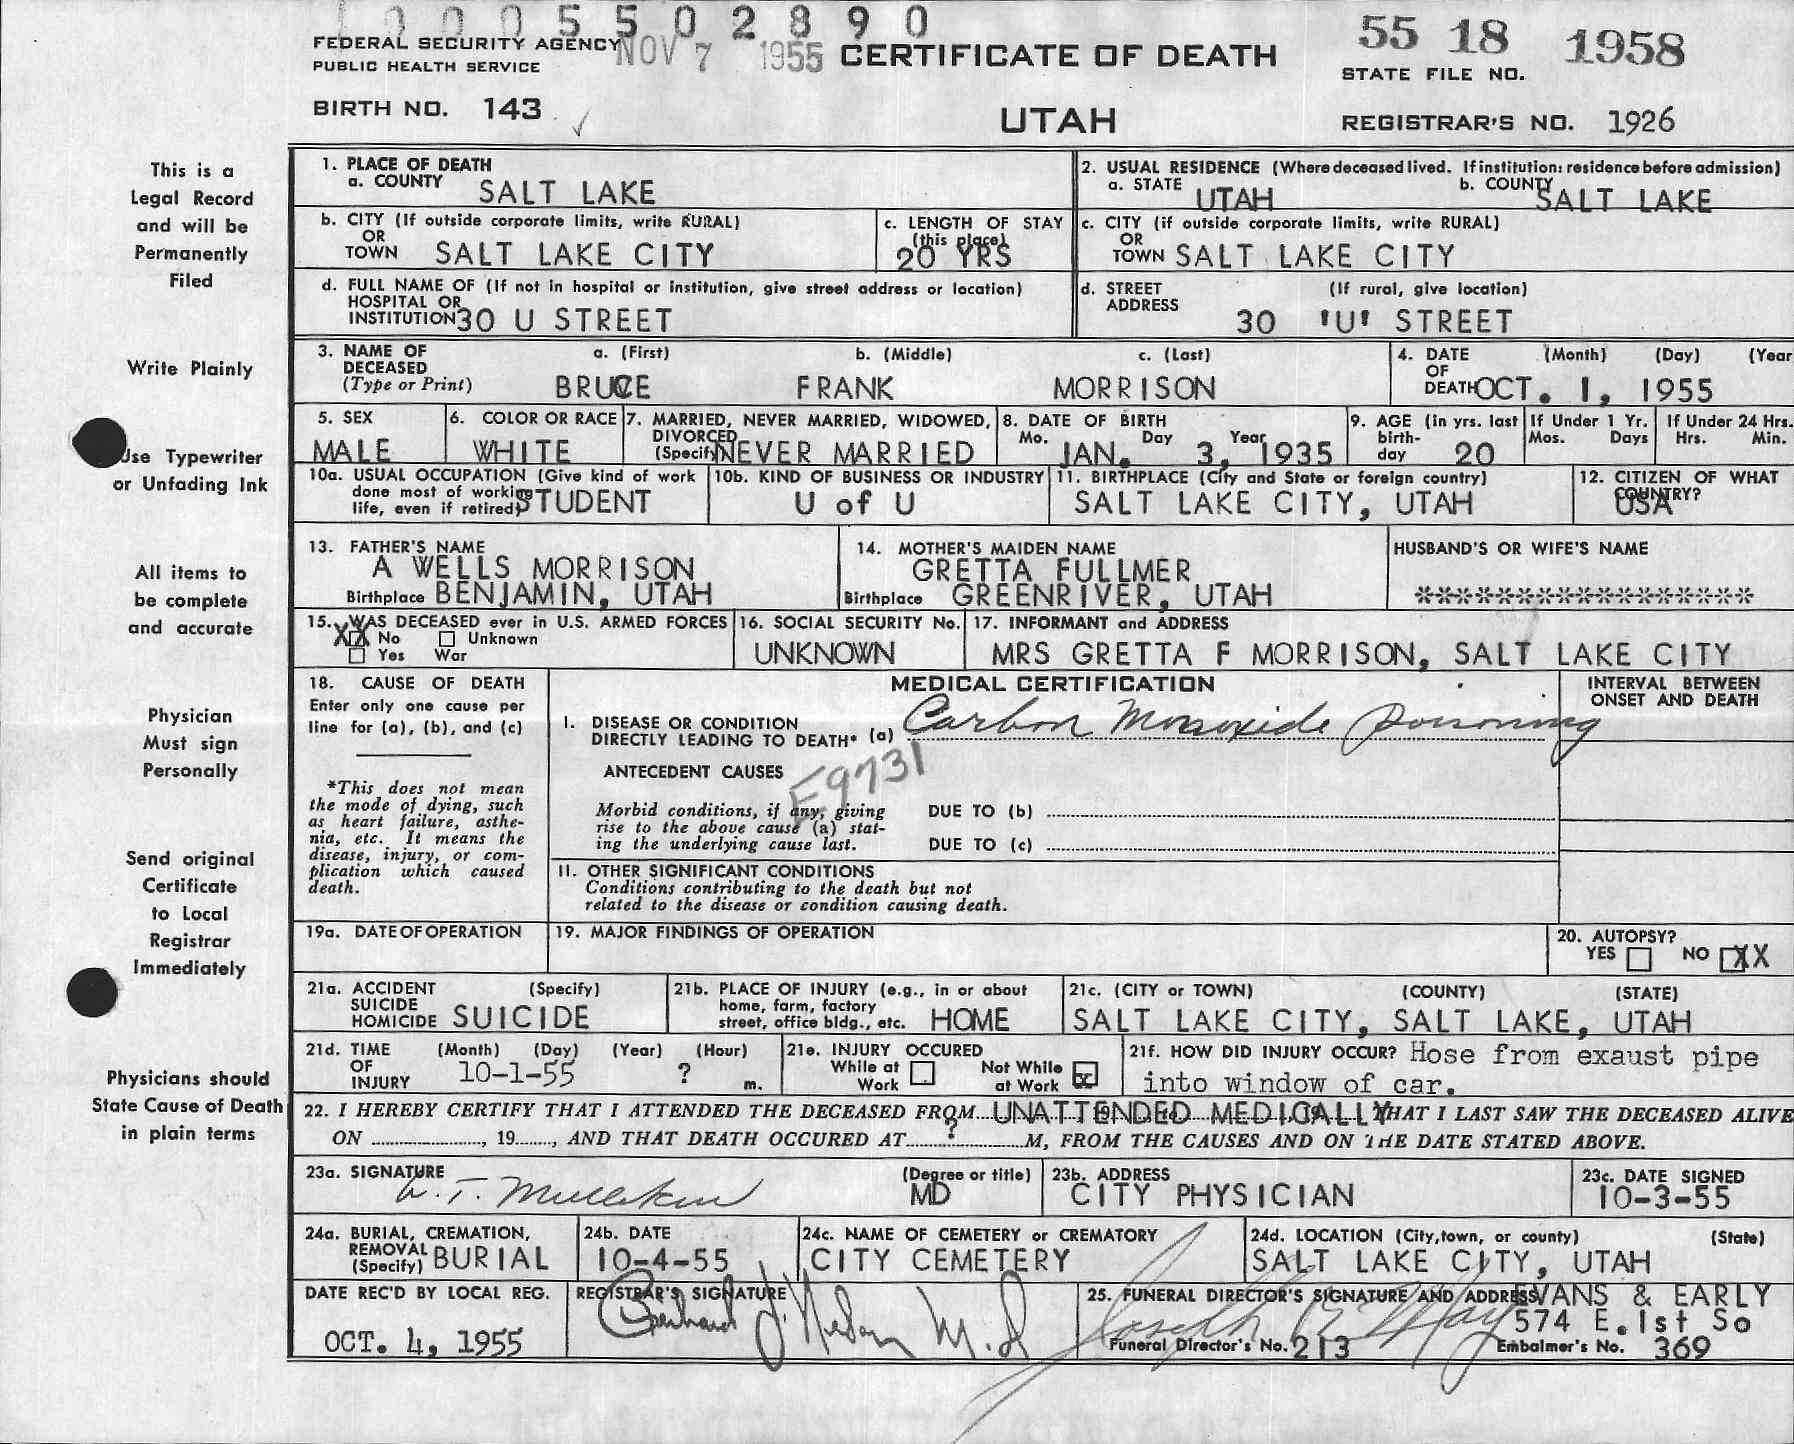 1 0 0 0 5 5 0 2 8 9 0
FEDERAL SECURITY AGENCY NOV 7 1955 CERTIFICATE OF DEATH 55 18 1958
PUBLIC HEALTH SERVICE STATE FILE NO.
BIRTH NO. 143 ✓ UTAH REGISTRAR'S NO. 1926
This is a
Legal Record
and will be
Permanently
Filed
Write Plainly
Use Typewriter
or Unfading Ink
All items to
be complete
and accurate
Physician
Must sign
Personally
Send original
Certificate
to Local
Registrar
Immediately
Physicians should
State Cause of Death
in plain terms
1. PLACE OF DEATH
a. COUNTY SALT LAKE
2. USUAL RESIDENCE (Where deceased lived. If institution: residence before admission)
a. STATE UTAH b. COUNTY SALT LAKE
b. CITY (If outside corporate limits, write RURAL)
OR
TOWN SALT LAKE CITY
c. LENGTH OF STAY
(this place)
20 YRS
c. CITY (if outside corporate limits, write RURAL)
OR
TOWN SALT LAKE CITY
d. FULL NAME OF (If not in hospital or institution, give street address or location)
HOSPITAL OR
INSTITUTION 30 U STREET
d. STREET (If rural, give location)
ADDRESS
30 'U' STREET
3. NAME OF a. (First) b. (Middle) c. (Last)
DECEASED
(Type or Print) BRUCE FRANK MORRISON
4. DATE (Month) (Day) (Year
OF
DEATH OCT. 1, 1955
5. SEX
MALE
6. COLOR OR RACE
WHITE
7. MARRIED, NEVER MARRIED, WIDOWED,
DIVORCED
(Specify NEVER MARRIED
8. DATE OF BIRTH
Mo. Day Year
JAN. 3, 1935
9. AGE (in yrs. last
birth-
day 20
If Under 1 Yr.
Mos. Days
If Under 24 Hrs.
Hrs. Min.
10a. USUAL OCCUPATION (Give kind of work
done most of working
life, even if retired) STUDENT
10b. KIND OF BUSINESS OR INDUSTRY
U of U
11. BIRTHPLACE (City and State or foreign country)
SALT LAKE CITY, UTAH
12. CITIZEN OF WHAT
COUNTRY?
USA
13. FATHER'S NAME
A WELLS MORRISON
Birthplace BENJAMIN, UTAH
14. MOTHER'S MAIDEN NAME
GRETTA FULLMER
Birthplace GREENRIVER, UTAH
HUSBAND'S OR WIFE'S NAME
*****************
15. WAS DECEASED ever in U.S. ARMED FORCES
XX No Unknown
Yes War
16. SOCIAL SECURITY No.
UNKNOWN
17. INFORMANT and ADDRESS
MRS GRETTA F MORRISON, SALT LAKE CITY
18. CAUSE OF DEATH
Enter only one cause per
line for (a), (b), and (c)
*This does not mean
the mode of dying, such
as heart failure, asthe-
nia, etc. It means the
disease, injury, or com-
plication which caused
death.
MEDICAL CERTIFICATION
INTERVAL BETWEEN
ONSET AND DEATH
I. DISEASE OR CONDITION
DIRECTLY LEADING TO DEATH* (a) Carbon Monoxide poisoning
ANTECEDENT CAUSES E9731
Morbid conditions, if any, giving DUE TO (b)
rise to the above cause (a) stat-
ing the underlying cause last. DUE TO (c)
II. OTHER SIGNIFICANT CONDITIONS
Conditions contributing to the death but not
related to the disease or condition causing death.
19a. DATE OF OPERATION
19. MAJOR FINDINGS OF OPERATION
20. AUTOPSY?
YES NO XX
21a. ACCIDENT (Specify)
SUICIDE
HOMICIDE SUICIDE
21b. PLACE OF INJURY (e.g., in or about
home, farm, factory
street, office bldg., etc. HOME
21c. (CITY or TOWN) (COUNTY) (STATE)
SALT LAKE CITY, SALT LAKE, UTAH
21d. TIME (Month) (Day) (Year) (Hour)
OF 10-1-55 ?
INJURY m.
21e. INJURY OCCURED
While at Not While
Work at Work X
21f. HOW DID INJURY OCCUR? Hose from exaust pipe
into window of car.
22. I HEREBY CERTIFY THAT I ATTENDED THE DECEASED FROM UNATTENDED MEDICALLY THAT I LAST SAW THE DECEASED ALIVE
ON , 19 , AND THAT DEATH OCCURED AT ? M, FROM THE CAUSES AND ON THE DATE STATED ABOVE.
23a. SIGNATURE (Degree or title)
MD
23b. ADDRESS
CITY PHYSICIAN
23c. DATE SIGNED
10-3-55
24a. BURIAL, CREMATION,
REMOVAL
(Specify) BURIAL
24b. DATE
10-4-55
24c. NAME OF CEMETERY or CREMATORY
CITY CEMETERY
24d. LOCATION (City, town, or county) (State)
SALT LAKE CITY, UTAH
DATE REC'D BY LOCAL REG.
OCT. 4, 1955
REGISTRAR'S SIGNATURE
M.D
25. FUNERAL DIRECTOR'S SIGNATURE AND ADDRESS EVANS & EARLY
574 E. 1st So
Funeral Director's No. 213 Embalmer's No. 369